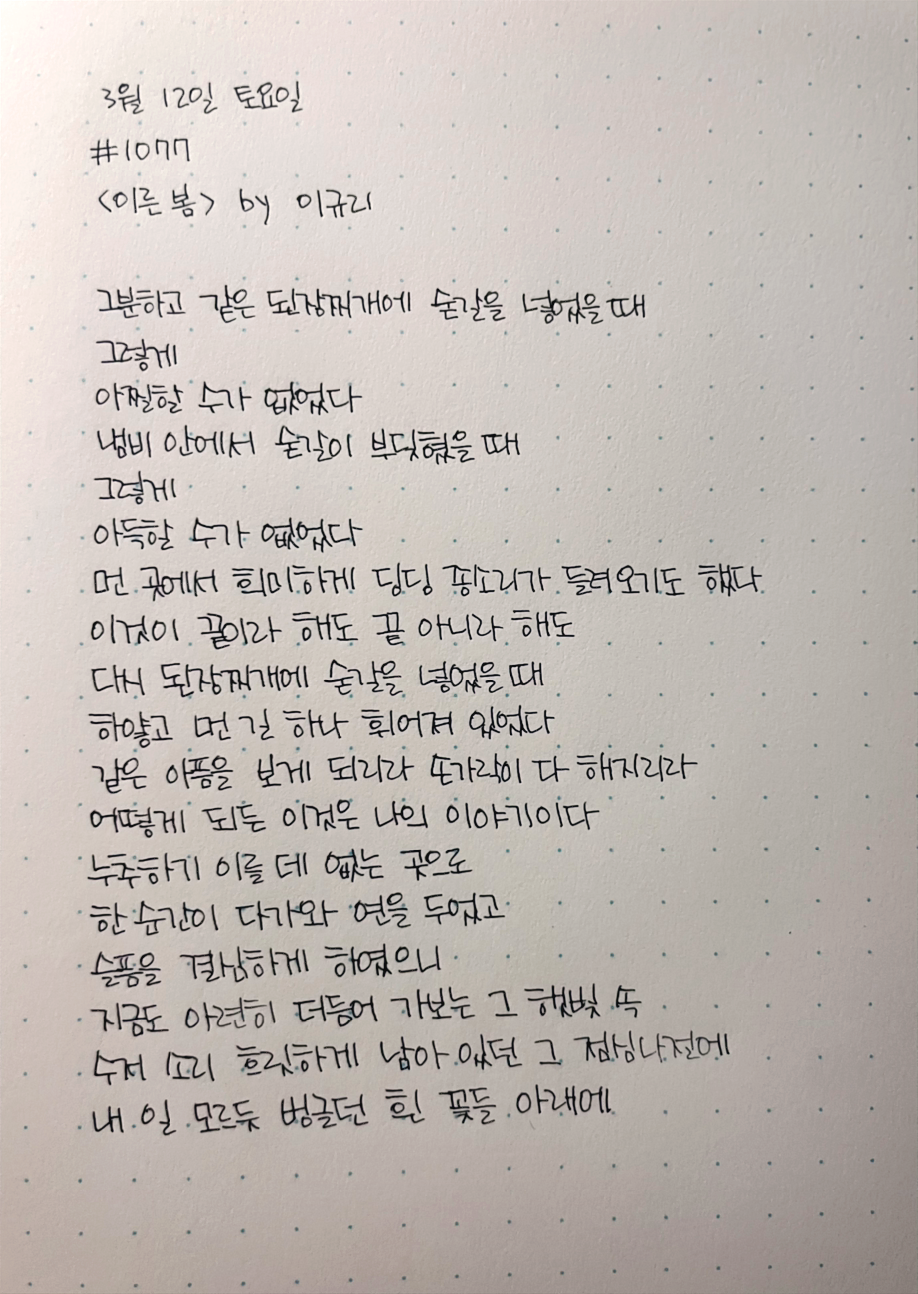 3월 12일 토요일
#1077
<이른 봄> by 이규리
그분하고 같은 된장찌개에 숟갈을 넣었을 때
그렇게
아찔할 수가 없었다
냄비 안에서 숟갈이 부딪혔을 때
그렇게
아득할 수가 없었다
먼 곳에서 희미하게 딩딩 종소리가 들려오기도 했다
이것이 끝이라 해도 끝 아니라 해도
다시 된장찌개에 숟갈을 넣었을 때
하얗고 먼 길 하나 휘어져 있었다
같은 아픔을 보게 되리라 손가락이 다 해지리라
어떻게 되든 이것은 나의 이야기이다
누추하기 이를 데 없는 곳으로
한 순간이 다가와 연을 두었고
슬픔을 결심하게 하였으니
지금도 아련히 더듬어 가보는 그 햇빛 속
수저 소리 흐릿하게 남아 있던 그 점심나절에
내 일 모르듯 벙글던 흰 꽃들 아래에